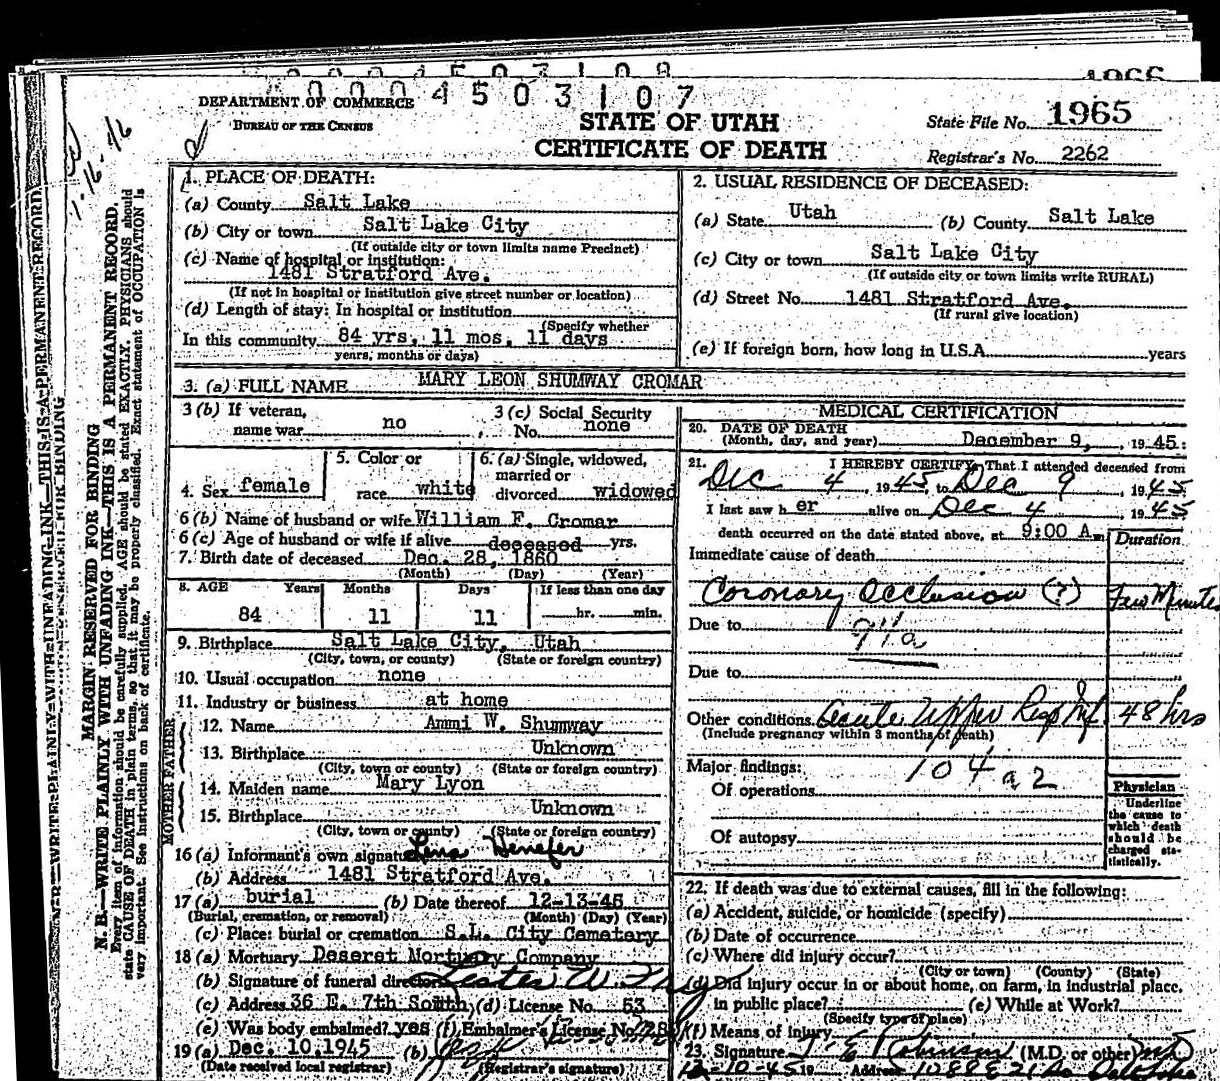 1966
0004503107
DEPARTMENT OF COMMERCE
BUREAU OF THE CENSUS
STATE OF UTAH
CERTIFICATE OF DEATH
State File No. 1965
Registrar's No. 2262
1. PLACE OF DEATH:
(a) County Salt Lake
(b) City or town Salt Lake City
(If outside city or town limits name Precinct)
(c) Name of hospital or institution:
1481 Stratford Ave.
(If not in hospital or institution give street number or location)
(d) Length of stay: In hospital or institution
(Specify whether
In this community 84 yrs. 11 mos. 11 days
years, months or days)
2. USUAL RESIDENCE OF DECEASED:
(a) State Utah (b) County Salt Lake
(c) City or town Salt Lake City
(If outside city or town limits write RURAL)
(d) Street No. 1481 Stratford Ave.
(If rural give location)
(e) If foreign born, how long in U.S.A. years
3. (a) FULL NAME MARY LEON SHUMWAY CROMAR
3 (b) If veteran, name war no
3 (c) Social Security No. none
4. Sex female
5. Color or race white
6. (a) Single, widowed, married or divorced widowed
6 (b) Name of husband or wife William F. Cromar
6 (c) Age of husband or wife if alive deceased yrs.
7. Birth date of deceased Dec. 28, 1860
(Month) (Day) (Year)
8. AGE Years Months Days If less than one day
84 11 11 hr. min.
9. Birthplace Salt Lake City, Utah
(City, town, or county) (State or foreign country)
10. Usual occupation none
11. Industry or business at home
FATHER
12. Name Ammi W. Shumway
13. Birthplace Unknown
(City, town or county) (State or foreign country)
MOTHER
14. Maiden name Mary Lyon
15. Birthplace Unknown
(City, town or county) (State or foreign country)
16 (a) Informant's own signature Lena Henefer
(b) Address 1481 Stratford Ave.
17 (a) burial (b) Date thereof 12-13-45
(Burial, cremation, or removal) (Month) (Day) (Year)
(c) Place: burial or cremation S.L. City Cemetery
18 (a) Mortuary Deseret Mortuary Company
(b) Signature of funeral director Lester W.
(c) Address 36 E. 7th South (d) License No. 53
(e) Was body embalmed? yes (f) Embalmer's License No.
19 (a) Dec. 10, 1945 (b)
(Date received local registrar) (Registrar's signature)
MEDICAL CERTIFICATION
20. DATE OF DEATH
(Month, day, and year) December 9, 1945
21. I HEREBY CERTIFY, That I attended deceased from
Dec 4, 1945, to Dec 9, 1945
I last saw her alive on Dec 4, 1945
death occurred on the date stated above, at 9:00 A m
Duration
Immediate cause of death
Coronary Occlusion (?) Few Minutes
Due to 94a
Due to
Other conditions Acute Upper Resp Inf. 48 hrs
(Include pregnancy within 3 months of death)
Major findings: 104 a 2
Of operations
Of autopsy
Physician
Underline the cause to which death should be charged statistically.
22. If death was due to external causes, fill in the following:
(a) Accident, suicide, or homicide (specify)
(b) Date of occurrence
(c) Where did injury occur?
(City or town) (County) (State)
(d) Did injury occur in or about home, on farm, in industrial place, in public place? (e) While at Work?
(Specify type of place)
(f) Means of injury
23. Signature T. E. Robinson (M.D. or other) MD
12-10-45 19 Address
MARGIN RESERVED FOR BINDING
N. B.—WRITE PLAINLY WITH UNFADING INK—THIS IS A PERMANENT RECORD.
Every item of information should be carefully supplied. AGE should be stated EXACTLY. PHYSICIANS should
state CAUSE OF DEATH in plain terms, so that it may be properly classified. Exact statement of OCCUPATION is
very important. See instructions on back of certificate.